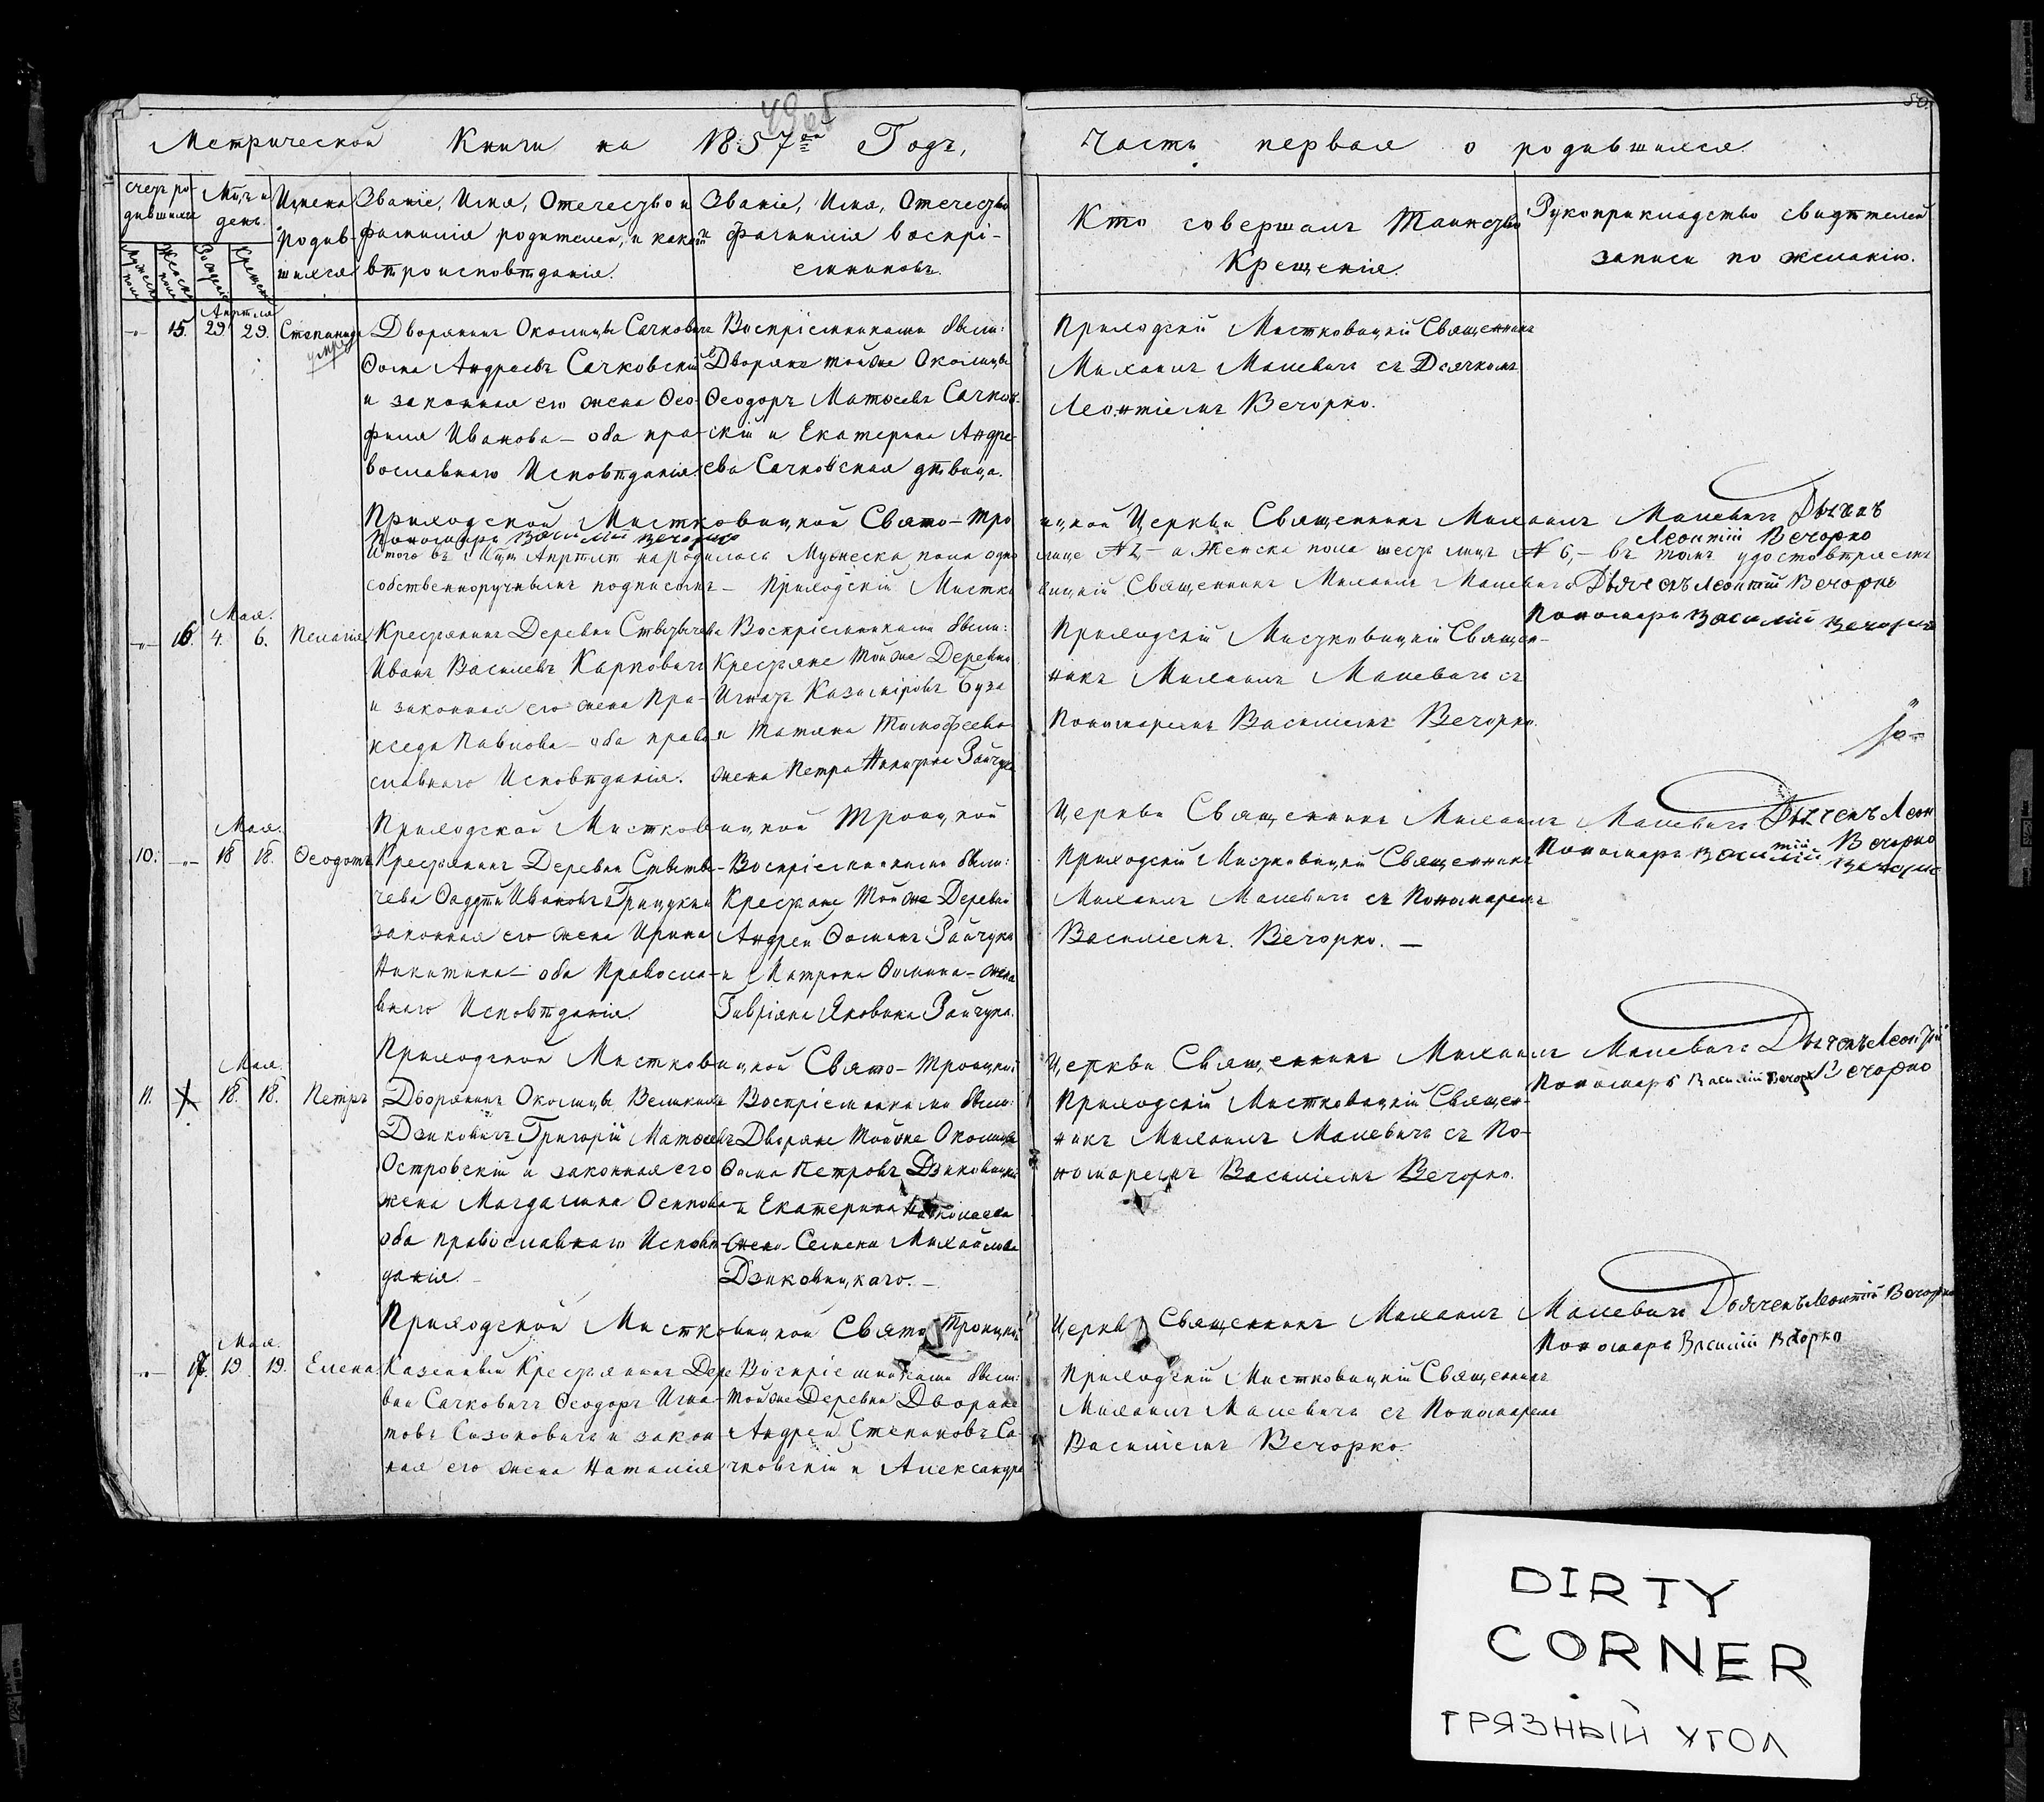 49 об
50.
Метрической Книги на 1857ой Годъ,
Часть первая о родившихся.
счетъ ро-
дившихся
Мужеска
пола
Женска
пола
Мцъ и
день.
Рожденія
Крещенія
Имена
родив-
шихся
Званіе, Имя, Отечество и
фамилія родителей, и какой
вѣроисповѣданія.
Званіе, Имя, Отечество
и фамилія воспрі-
емниковъ.
Кто совершалъ Таинство
Крещенія.
Рукоприкладство свидѣтелей
записи по желанію.
Апрѣля
15. 29 29. Степанида
Дворянинъ Околицы Сачковичъ
Ѳома Андреевъ Сачковскій
и законная его жена Ѳео-
филя Иванова – оба пра-
вославнаго Исповѣданія.
Воспріемниками были:
Дворяне тойже Околицы
Ѳеодоръ Матѳеевъ Сачков-
скій и Екатерина Андре-
ева Сачковская дѣвица.
Приходскій Мистковицкій Священникъ
Михаилъ Малевичъ съ Дьячкомъ
Леонтіемъ Вечорко.
Приходской Мистковицкой Свято-Троицкой Церкви Священникъ Михаилъ Малевичъ Дьячекъ
Леонтій Вечорко
Пономарь Василій Вечорко
Итого въ Мцѣ Апрѣлѣ народилось Мужеска пола одно лице № 1,– а Женска пола шесть лицъ № 6,– въ томъ удостовѣряемъ
собственноручнымъ подписомъ – Приходскій Мистковицкій Священникъ Михаилъ Малевичъ Дьячекъ Леонтій Вечорко
Пономарь Василій Вечорко
Мая.
16. 4. 6. Пелагія
Крестьянинъ Деревни
Иванъ Василевъ Карповичъ
и законная его жена Пра-
кседа Павлова – оба право-
славнаго Исповѣданія.
Воспріемниками были:
Крестьяне Тойже Деревни
Игнатъ Казиміровъ Буза
и Татяна Тимофеева
жена Петра Никитина Зайчука
Приходскій Мистковицкій Священ-
никъ Михаилъ Малевичъ съ
Пономаремъ Василіемъ Вечорко.
Приходской Мистковицкой Троицкой Церкви Священникъ Михаилъ Малевичъ Дьячекъ Леон
тій Вечорко
Пономарь Василій Вечорко
Мая.
10. 18 18. Ѳеодотъ
Крестьянинъ Деревни
Ѳаддѣй Ивановъ Грицукъ и
законная его жена Ирина
Никитина – оба Правосла-
внаго Исповѣданія.
Воспріемниками были:
Крестьяне Тойже Деревни
Андрей Ѳоминъ Зайчукъ
и Матрона Ѳомина – жена
Гавріила Яковина Зайчука.
Приходскій Мистковицкій Священникъ
Михаилъ Малевичъ съ Пономаремъ
Василіемъ Вечорко. –
Приходской Мистковицкой Свято-Троицкой Церкви Священникъ Михаилъ Малевичъ Дьячекъ Леонтій
Вечорко
Пономарь Василій Вечорко
Мая.
11. 18. 18. Петръ
Дворянинъ Околицы Великихъ
Дзиковичъ Григорій Матѳеевъ
Островскій и законная его
жена Магдалина Осипова
оба православнаго Исповѣ-
данія. –
Воспріемниками были:
Дворяне Тойже Околицы
Ѳома Петровъ Дзиковицкій
и Екатерина
жена Семена Михайлова
Дзиковицкаго. –
Приходскій Мистковицкій Священ-
никъ Михаилъ Малевичъ съ По-
номаремъ Василіемъ Вечорко.
Приходской Мистковицкой Свято Троицкой Церкви Священникъ Михаилъ Малевичъ Дьячекъ Леонтій Вечорко
Пономарь Василій Вечорко
Мая.
17. 19. 19. Елена
Казенный Крестьянинъ Дере
вни Сачковичъ Ѳеодоръ Игна-
товъ Сазоновичъ и закон-
ная его жена Наталія
Воспріемниками были:
Тойже Деревни Дворяне
Андрей Степановъ Са-
чковскій и Александра
Приходскій Мистковицкій Священникъ
Михаилъ Малевичъ съ Пономаремъ
Василіемъ Вечорко.
DIRTY
CORNER
ГРЯЗНЫЙ УГОЛ